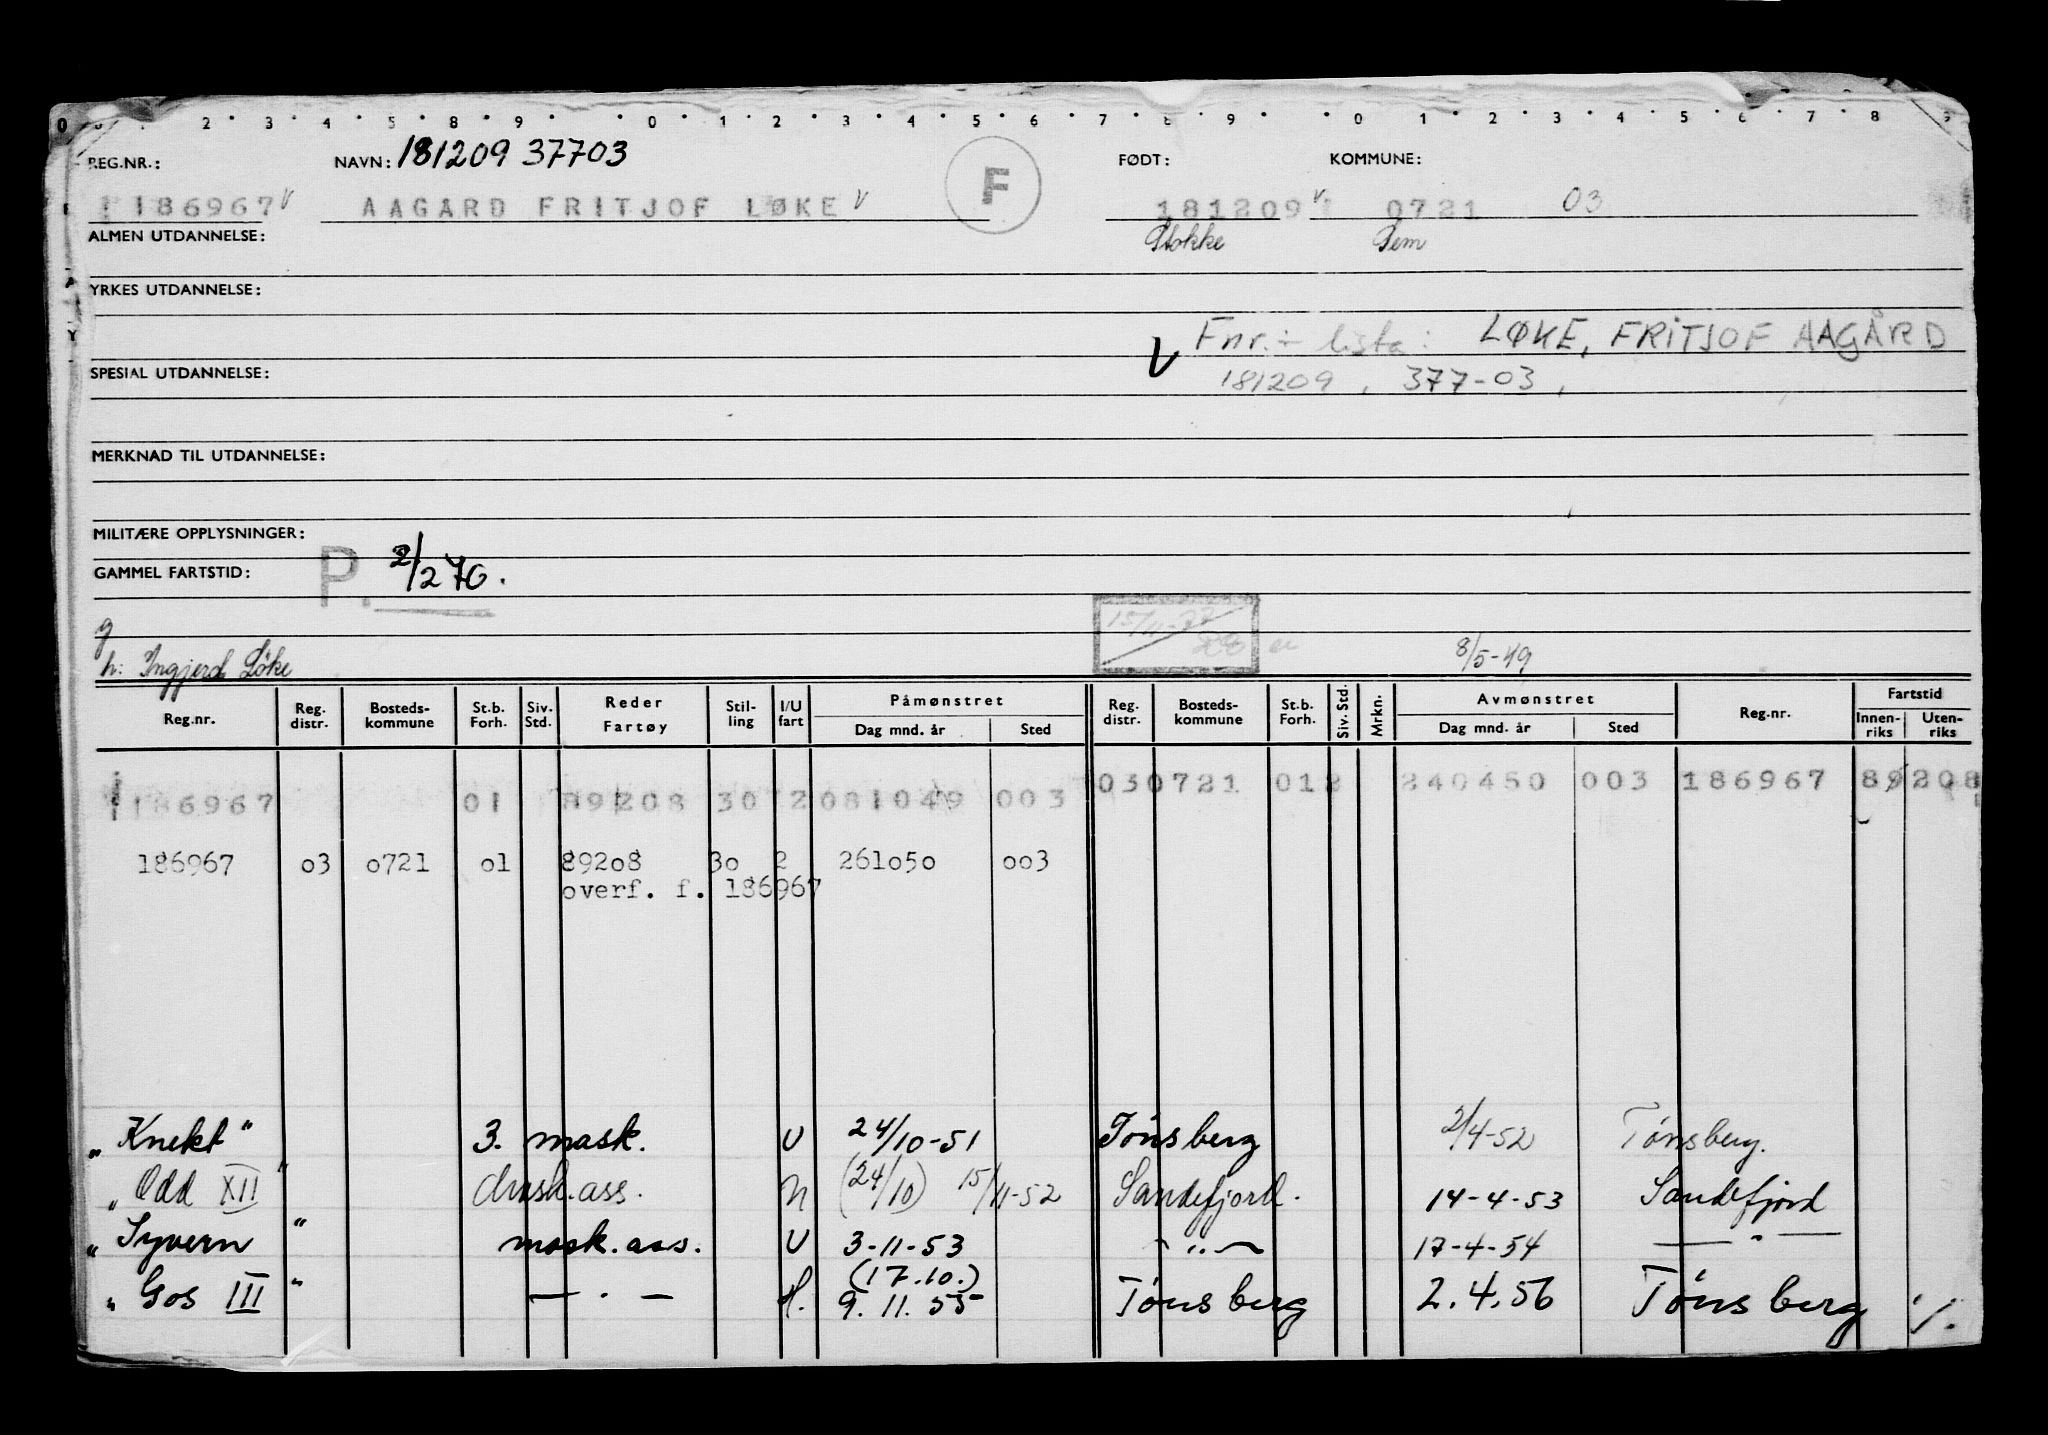 0 1 2 3 4 5 8 9 0 1 2 3 4 5 6 7 8 9 0 1 2 3 4 5 6 7 8 9
REG.NR.: NAVN: 181209 37703 F FØDT: KOMMUNE:
186967 V AAGARD FRITJOF LØKE V 181209 V 0721 03
ALMEN UTDANNELSE: Stokke Sem
YRKES UTDANNELSE:
V Fnr.- lista: LØKE, FRITJOF AAGÅRD
SPESIAL UTDANNELSE: 181209, 377-03,
MERKNAD TIL UTDANNELSE:
MILITÆRE OPPLYSNINGER:
GAMMEL FARTSTID: P. 2/2 76.
g 15/11-77
h: Ingjerd Løke 8/5-49
Reg.nr. Reg. distr. Bosteds-kommune St.b. Forh. Siv. Std. Reder Fartøy Stil-ling I/U fart Påmønstret Dag mnd. år Sted Reg. distr. Bosteds-kommune St.b. Forh. Siv. Std. Mrkn. Avmønstret Dag mnd. år Sted Reg.nr. Fartstid Innen-riks Uten-riks
186967 01 89208 30 2 081049 003 030721 012 240450 003 186967 89208
186967 03 0721 01 89208 30 2 261050 003
overf. f. 186967
"Knekt" 3. mask. U 24/10-51 Tönsberg 2/4-52 Tönsberg.
"Odd XII" mask.ass. N (24/10) 15/11-52 Sandefjord. 14-4-53 Sandefjord
"Syvern" mask.ass. U 3-11-53 — " — 17-4-54 — " —
(17.10.)
"Gos III" — " — H. 9.11.55 Tönsberg 2.4.56 Tönsberg ./.